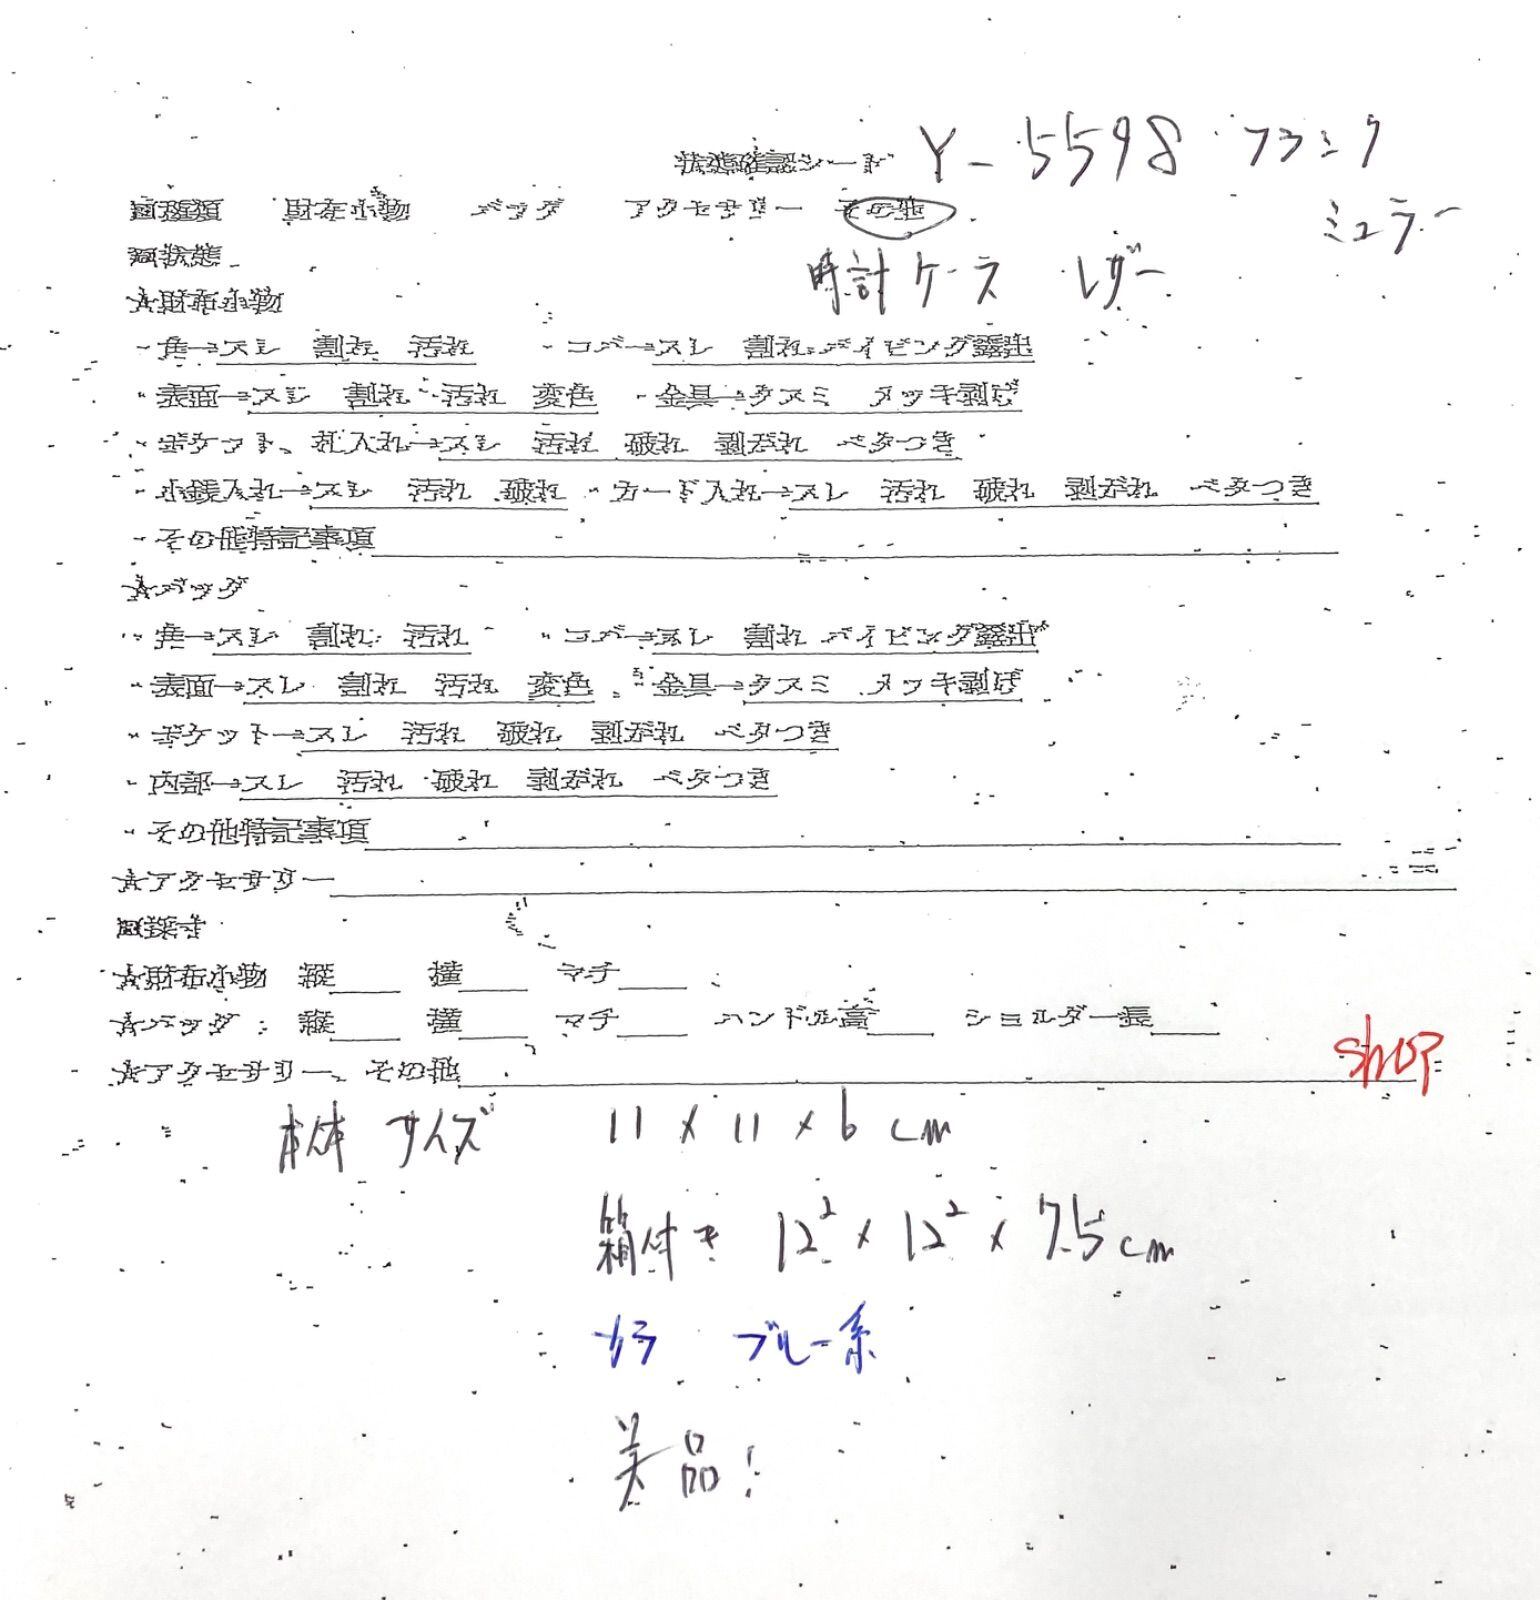 状態確認シート Y-5598 フランク
□種類 財布小物 バッグ アクセサリー その他 ミュラー
□状態 時計ケース レザー
☆財布小物
・角→スレ 割れ 汚れ ・コバ→スレ 割れ パイピング露出
・表面→スレ 割れ 汚れ 変色 ・金具→クスミ メッキ剥げ
・ポケット、札入れ→スレ 汚れ 破れ 剥がれ ベタつき
・小銭入れ→スレ 汚れ 破れ ・カード入れ→スレ 汚れ 破れ 剥がれ ベタつき
・その他特記事項
☆バッグ
・角→スレ 割れ 汚れ ・コバ→スレ 割れ パイピング露出
・表面→スレ 割れ 汚れ 変色 ・金具→クスミ メッキ剥げ
・ポケット→スレ 汚れ 破れ 剥がれ ベタつき
・内部→スレ 汚れ 破れ 剥がれ ベタつき
・その他特記事項
☆アクセサリー
□採寸
☆財布小物 縦 横 マチ
☆バッグ 縦 横 マチ ハンドル高 ショルダー長
☆アクセサリー、その他 SHOP
本体 サイズ 11 x 11 x 6 cm
箱付き 12² x 12² x 7.5 cm
カラ ブルー系
美品!